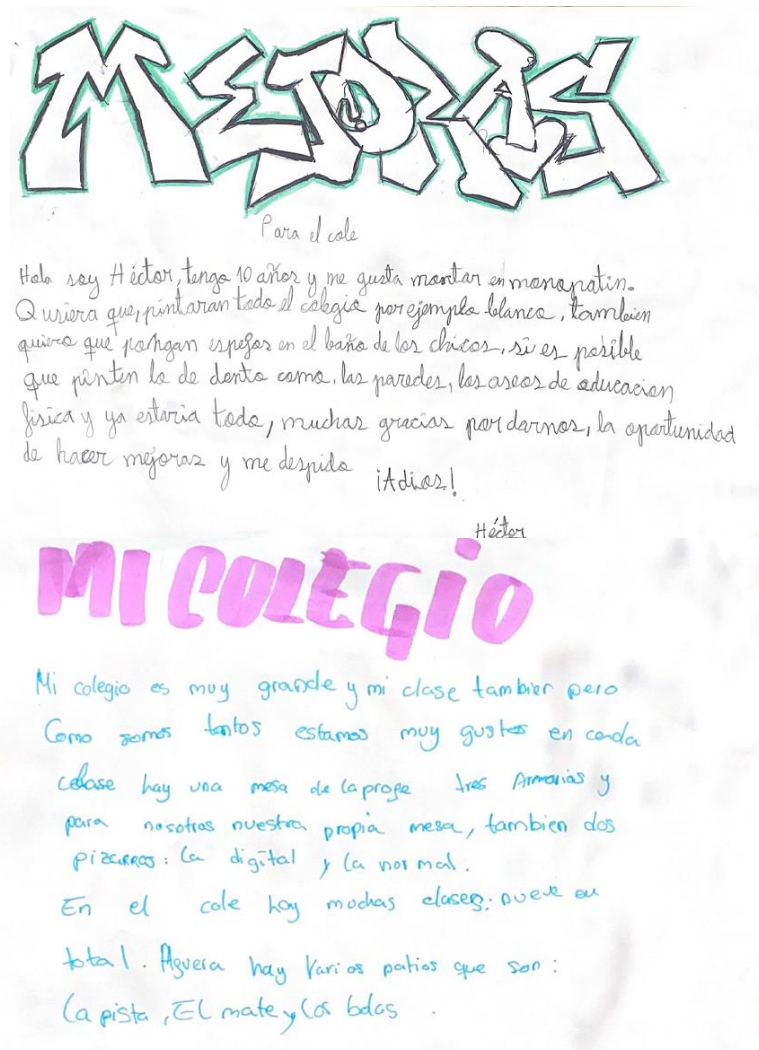 MEJORAS
Para el cole
Hola soy Héctor, tengo 10 años y me gusta montar en monopatin.
Quisiera que, pintaran todo el colegio por ejemplo blanco, tambien
quiero que pongan espejos en el baño de los chicos, si es posible
que pinten lo de dento como, las paredes, los aseos de educacion
fisica y ya estaria todo, muchas gracias por darnos, la oportunidad
de hacer mejoras y me despido ¡Adios!
Héctor
MI COLEGIO
Mi colegio es muy grande y mi clase tambien pero
Como somos tantos estamos muy gustos en cada
clase hay una mesa de la profe tres Armarios y
para nosotros nuestra propia mesa, tambien dos
pizarras: la digital y la normal.
En el cole hay muchas clases: nueve en
total. Aguera hay Varios patios que son:
La pista, EL mate y Los